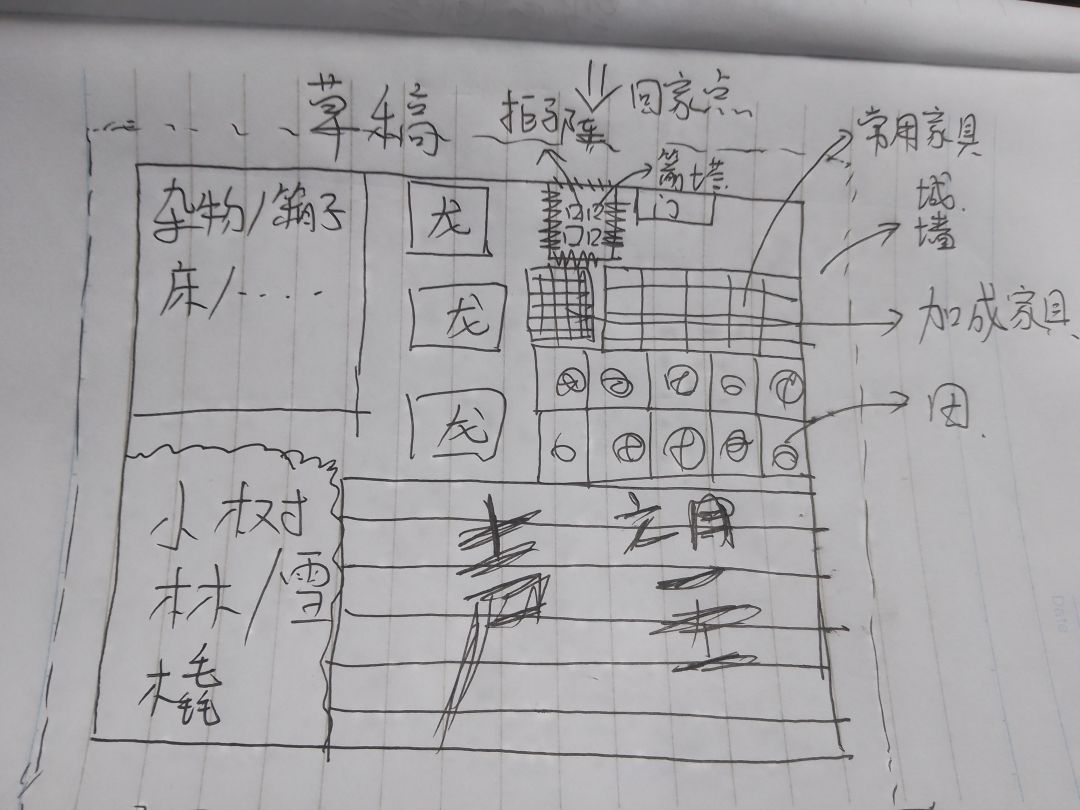 草稿
回家点
箭塔
门
常用家具
城
墙
加成家具
田
杂物/箱子
床/.....
龙
龙
龙
小树
林/雪
橇
Date